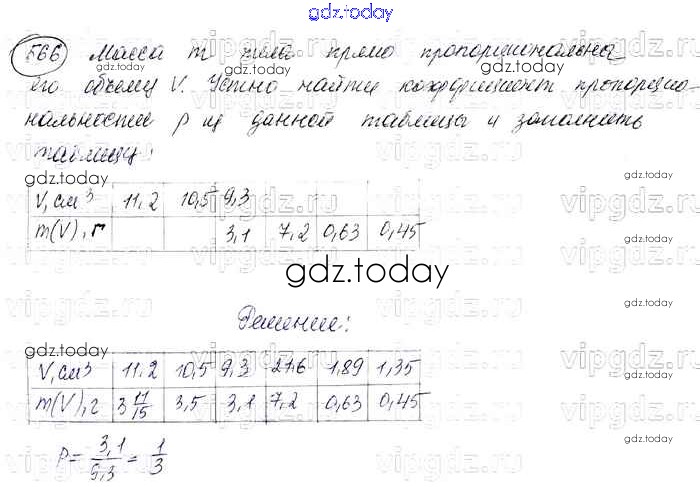 gdz.today
566 Масса m тела прямо пропорциональна
его объему V. Устно найти коэффициент пропорцио-
нальности ρ из данной таблицы и заполнить
таблицу:
gdz.today
V, см³ 11,2 10,5 9,3
m(V), г 3,1 7,2 0,63 0,45
gdz.today
Решение:
gdz.today
V, см³ 11,2 10,5 9,3 21,6 1,89 1,35
m(V), г 3 11/15 3,5 3,1 7,2 0,63 0,45
ρ = 3,1/9,3 = 1/3
gdz.today
vipgdz.ru